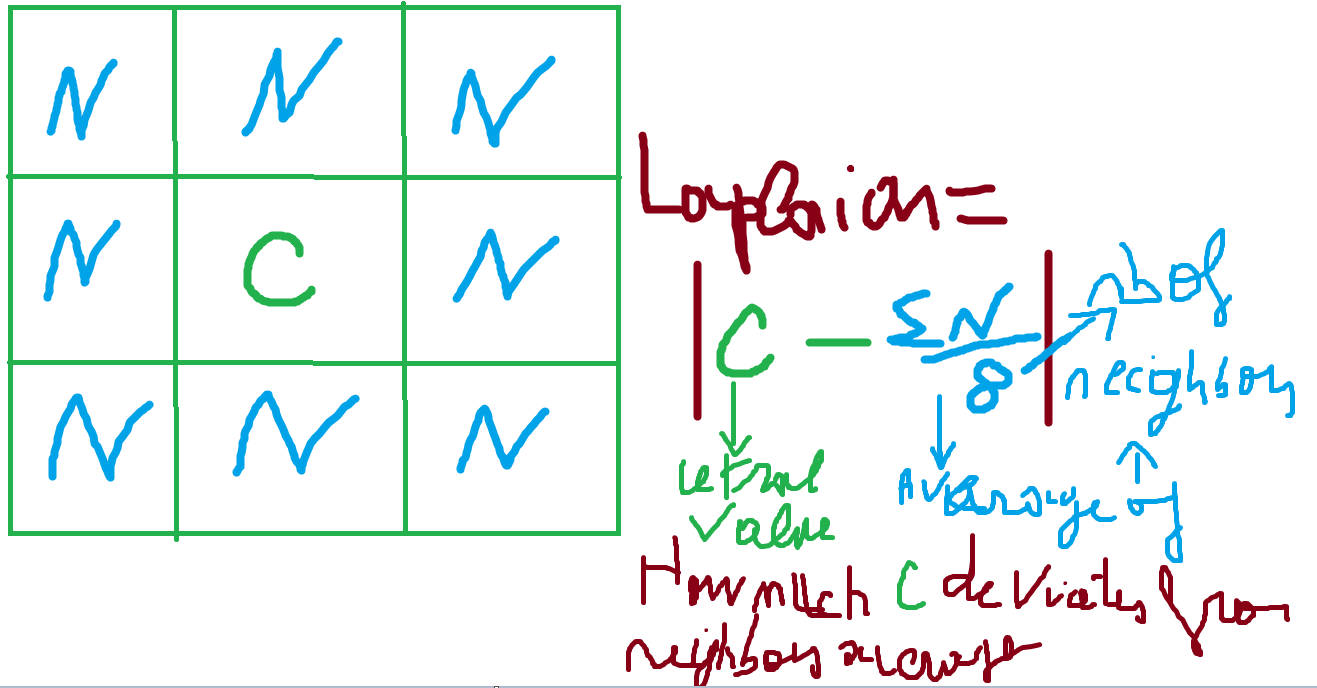 N N N
N C N
N N N
Layplaian =
| C - ΣN/8 |
nb of
neighbors
cetral
value
Average of
How much C deviates from
neighbors average